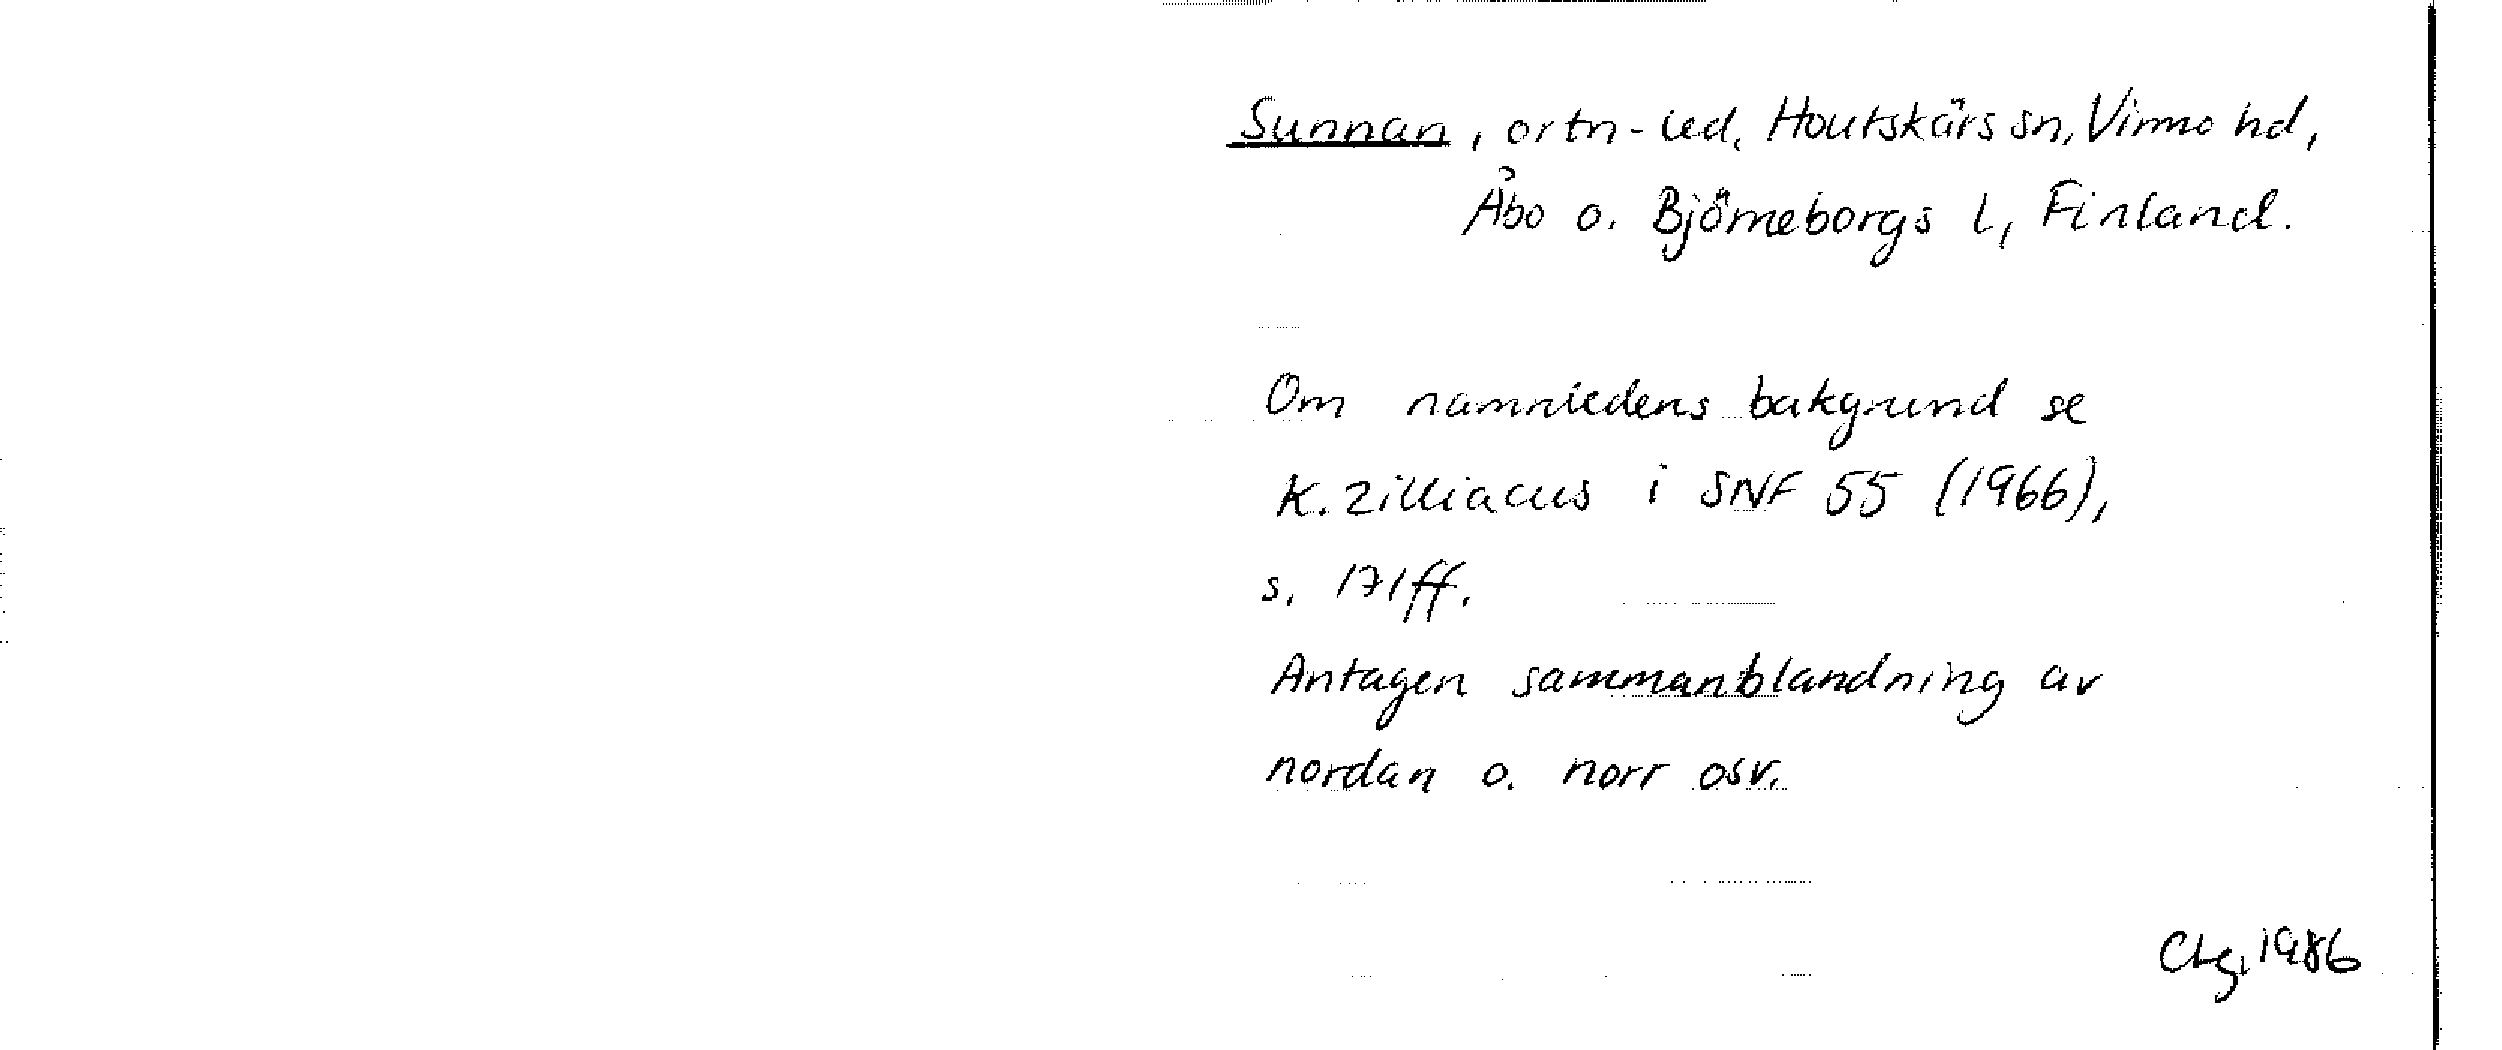 Sunnan, ortn-led, Houtskärs sn, Virmo hd,
Åbo o. Björneborgs l, Finland.
Om namnledens bakgrund se
K. Zilliacus i SNF 55 (1966),
s. 171ff.
Antagen sammanblandning av
nordan o. norr osv.
CLg, 1986